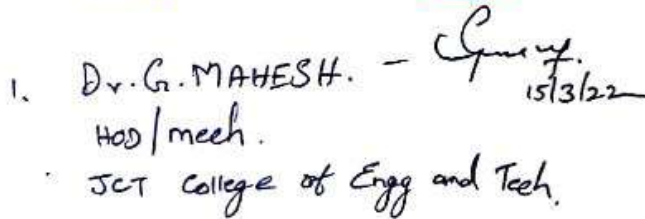 1. Dr. G. MAHESH. -
15/3/22
HOD/mech.
JCT College of Engg and Tech.